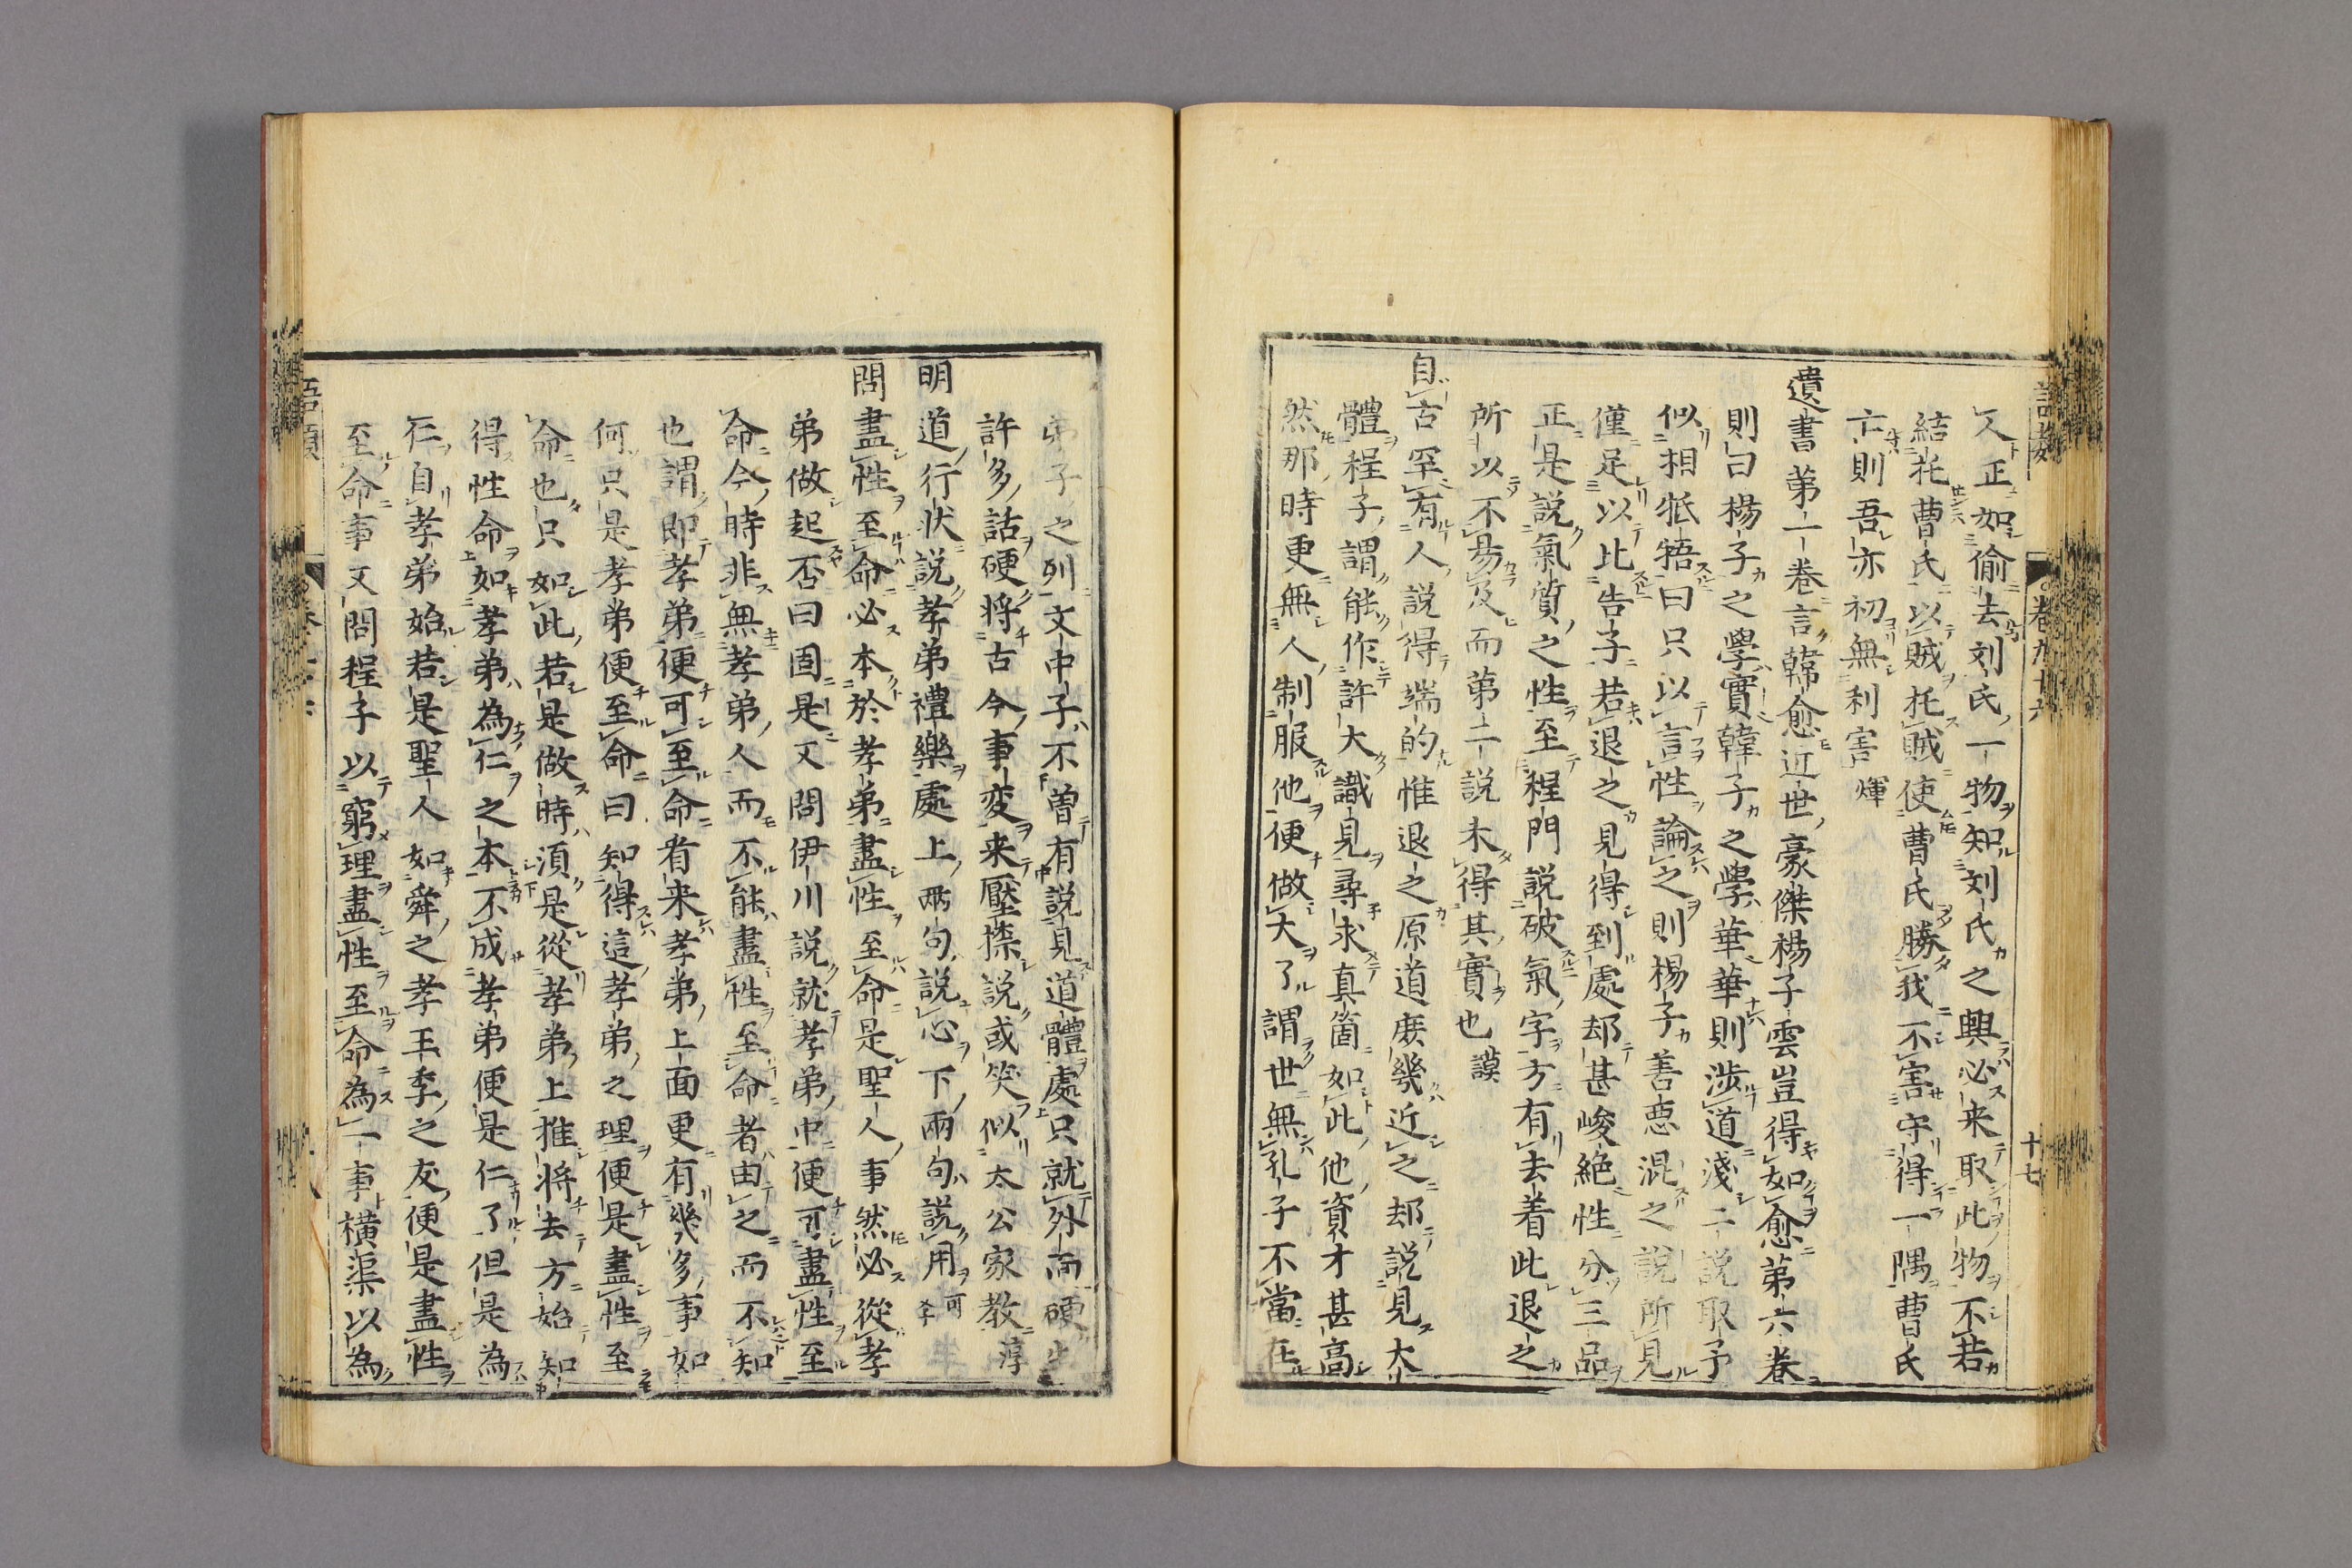 又正如偷去刘氏一物知刘氏之興必来取此物不若
結托曹氏以賊托賊使曹氏勝我不害守得一隅曹氏
亡則吾亦初無利害煇
遺書第一卷言韓愈近世豪傑楊子雲豈得如愈第六卷
則曰楊子之學實韓子之學華華則涉道淺二說取予
似相牴牾曰只以言性論之則楊子善惡混之說所見
僅足以比告子若退之見得到處却甚峻絶性分三品
正是說氣質之性至程門說破氣字方有去着此退之
所以不易及而第二說未得其實也謨
自古罕有人說得端的惟退之原道庶幾近之却說見大
體程子謂能作許大識見尋求真箇如此他資才甚高
然那時更無人制服他便做大了謂世無孔子不當在
弟子之列文中子不曾有說見道體處只就外面硬生
許多話硬将古今事変来壓捺說或笑似太公家教淳
明道行状說孝弟禮樂處上兩句說心下兩句說用可學
問盡性至命必本於孝弟盡性至命是聖人事然必從孝
弟做起否曰固是又問伊川說就孝弟中便可盡性至
命今時非無孝弟人而不能盡性至命者由之而不知
也謂即孝弟便可至命看来孝弟上面更有幾多事如
何只是孝弟便至命曰知得這孝弟之理便是盡性至
命也只如此若是做時須是從孝弟上推将去方始知
得性命如孝弟為仁之本不成孝弟便是仁了但是為
仁自孝弟始若是聖人如舜之孝王季之友便是盡性
至命事又問程子以窮理盡性至命為一事橫渠以為
語類
卷九十六
十七